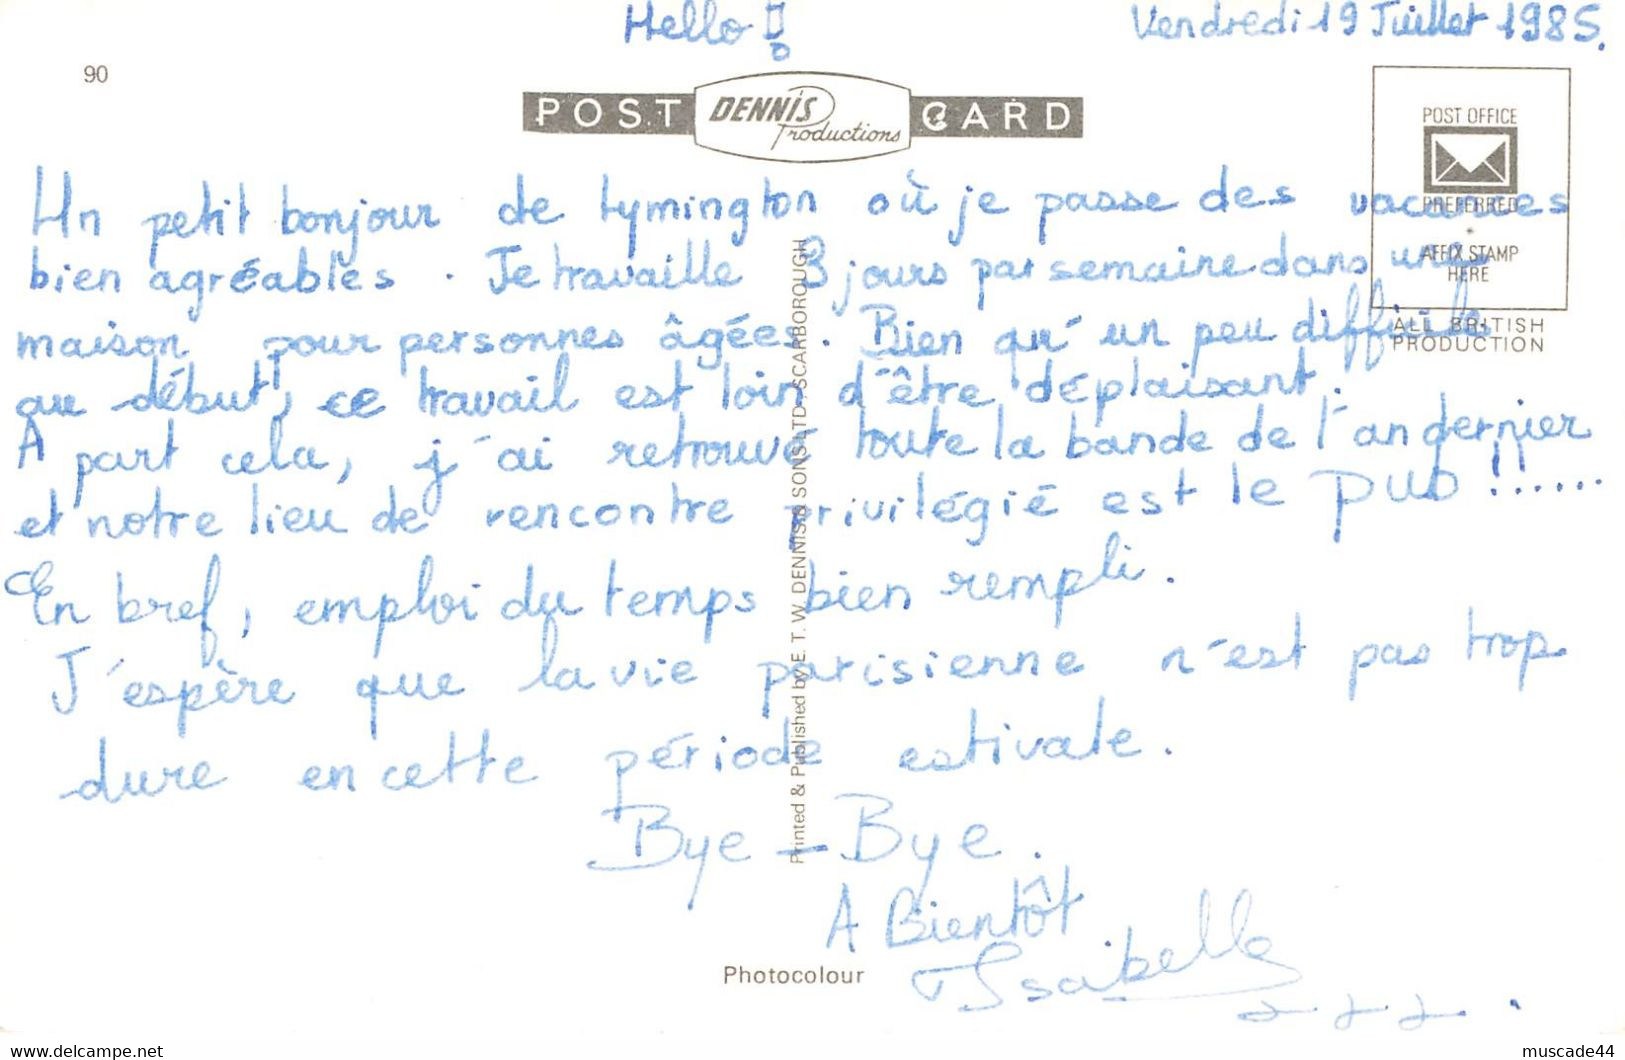 Hello !
Vendredi 19 Juillet 1985.
90
POST DENNIS Productions CARD
POST OFFICE
PREFERRED
AFFIX STAMP
HERE
ALL BRITISH
PRODUCTION
Un petit bonjour de Lymington où je passe des vacances
bien agréables. Je travaille 3 jours par semaine dans une
maison pour personnes âgées. Bien qu'un peu difficile
au début, ce travail est loin d'être déplaisant.
A part cela, j'ai retrouvé toute la bande de l'an dernier
et notre lieu de rencontre privilégié est le PUB !!......
En bref, emploi du temps bien rempli.
J'espère que la vie parisienne n'est pas trop
dure en cette période estivale.
Bye - Bye.
A Bientôt
Isabelle
Printed & Published by E. T. W. DENNIS & SONS LTD. SCARBOROUGH
Photocolour
www.delcampe.net
muscade44